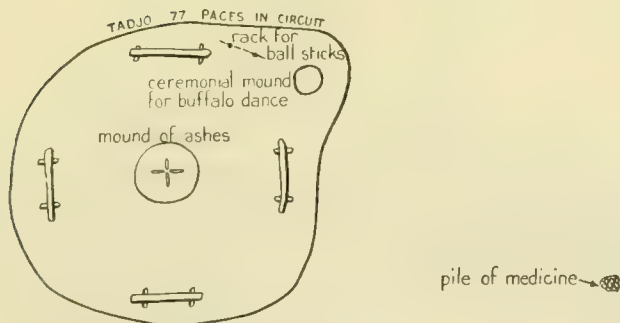 TADJO 77 PACES IN CIRCUIT
rack for
ball sticks
ceremonial mound
for buffalo dance
mound of ashes
pile of medicine